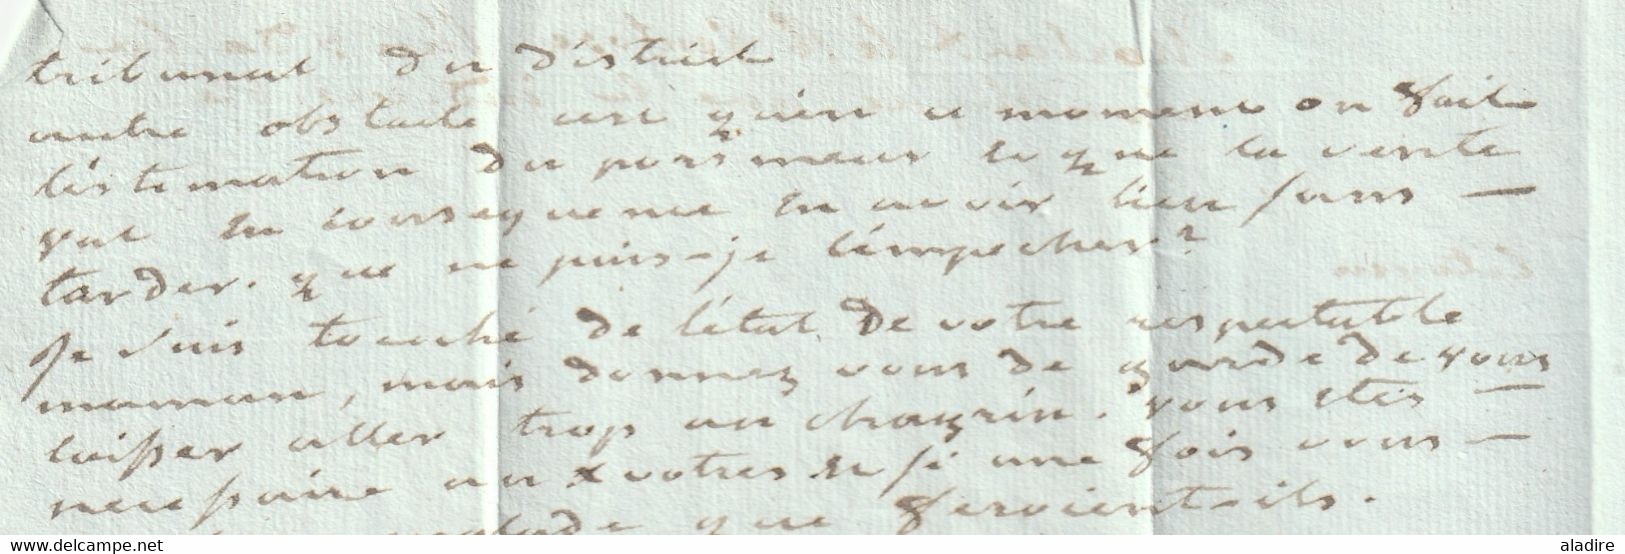 tribunal du district
autre obstacle c'est qu'en ce moment on fait
l'éstimation du et que la vente
vat en consequence en avoir lieu sans -
tarder. que ne puis-je l'émpecher?
Je suis touché de l'état de votre respectable
maman, mais donnez vous de garde de vous
laisser aller trop au chagrin. vous etes -
necessaire aux votres et si une fois vous -
malade que feroient-ils.
www.delcampe.net
aladire